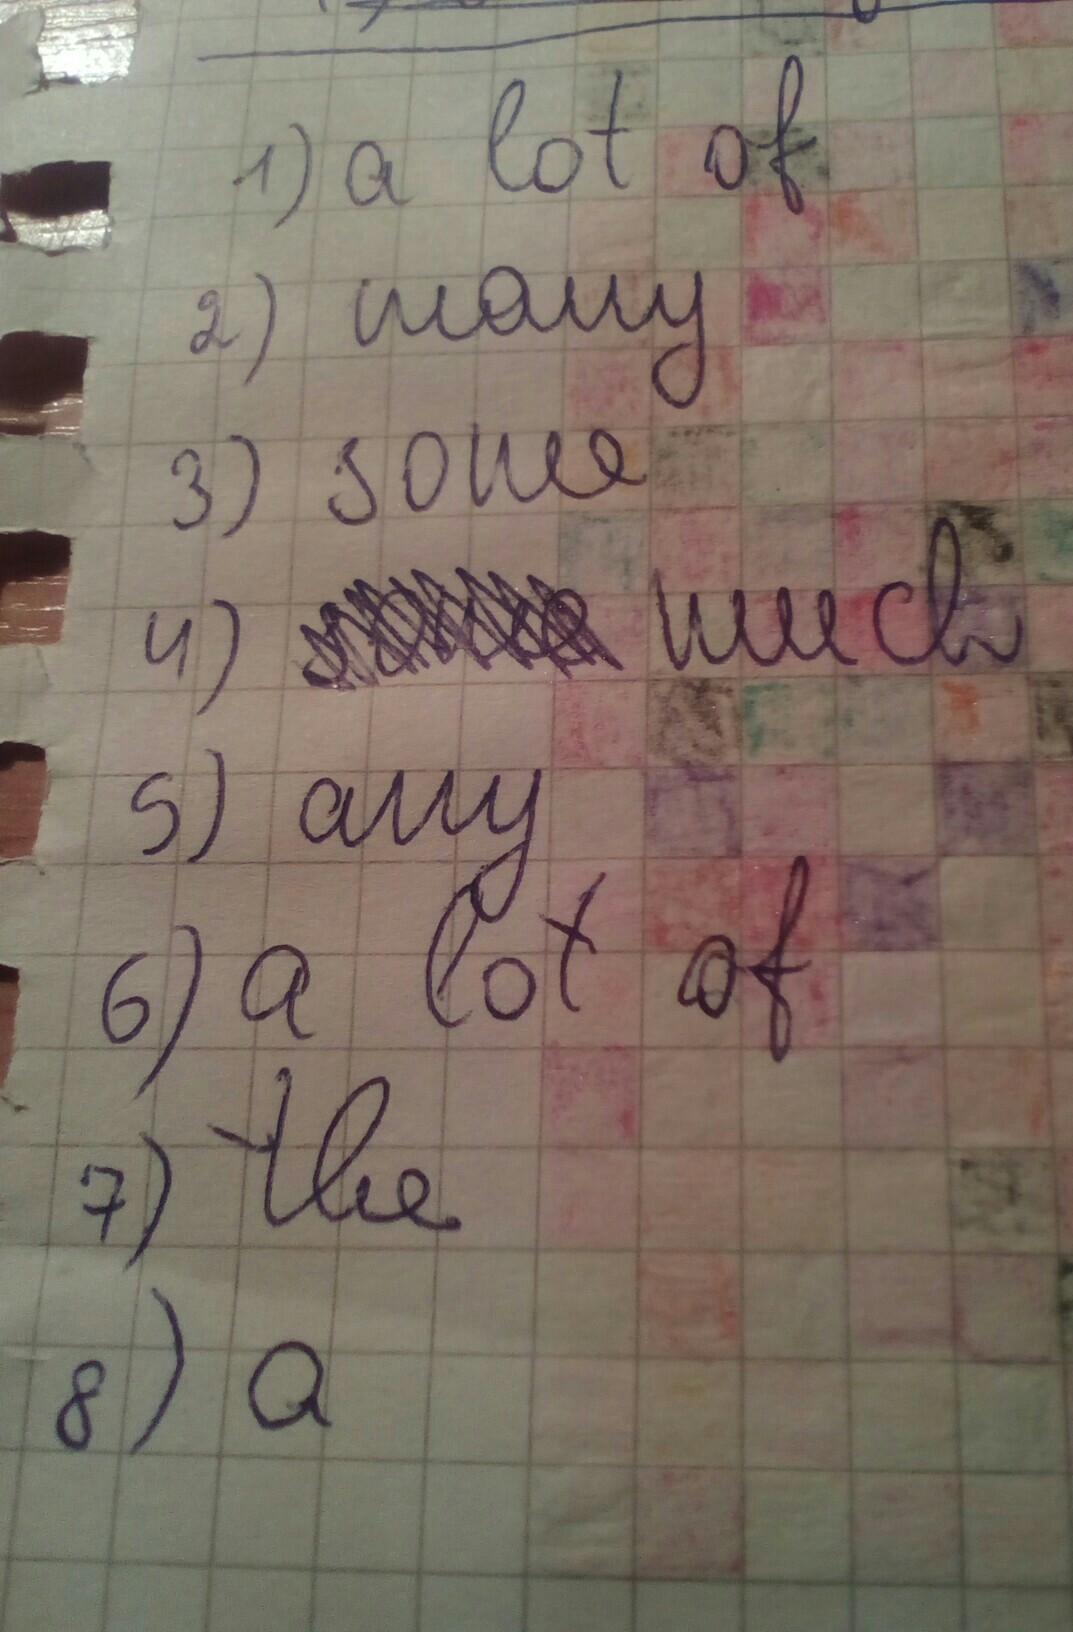 1) a lot of
2) many
3) some
4) much
5) any
6) a lot of
7) the
8) a